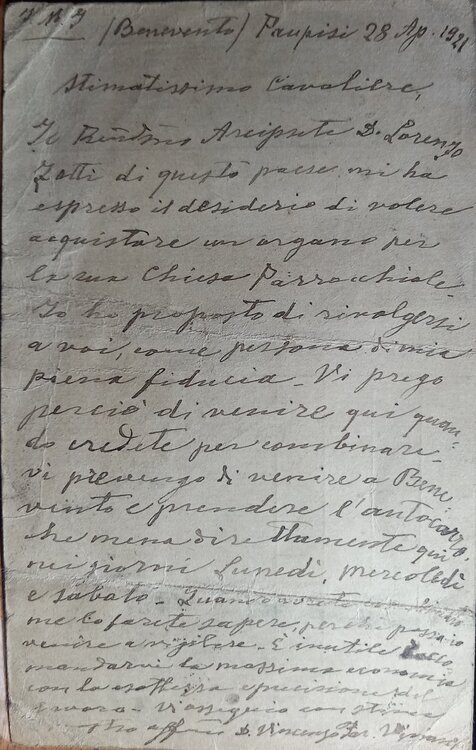 (Benevento) Paupisi 28 Ap. 1921
Stimatissimo Cavaliere,
Il Arciprete D. Lorenzo
Zotti di questo paese mi ha
espresso il desiderio di volere
acquistare un organo per
la sua Chiesa Parrocchiale.
Io ho proposto di rivolgersi
a voi, come persona di mia
piena fiducia - Vi prego
perciò di venire qui quan-
do credete per combinare -
vi prevengo di venire a Bene
vento e prendere l'autocarro,
che mena direttamente qui
nei giorni Lunedì, Mercoledì
e Sabato -
me lo farete sapere, perchè possa io
venire a vigilare - È inutile
mandarvi la massima economia
con la esattezza e precisione del
lavoro - Vi ossequio con stima
D. Vincenzo